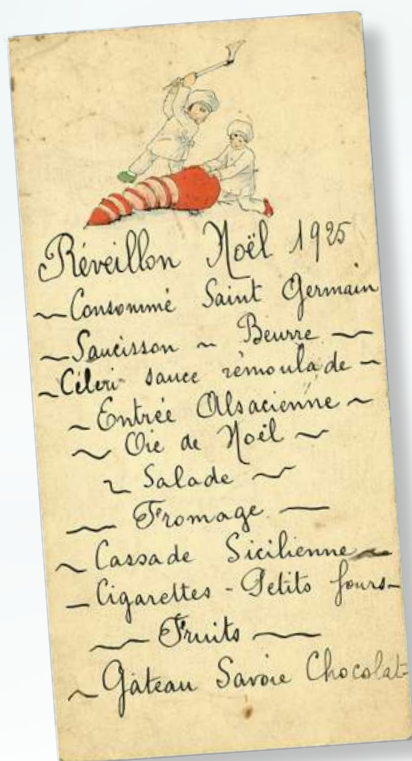 Réveillon Noël 1925
~ Consommé Saint Germain
~ Saucisson ~ Beurre ~
~ Céleri sauce rémoulade ~
~ Entrée Alsacienne ~
~ Oie de Noël ~
~ Salade ~
~ Fromage ~
~ Cassade Sicilienne ~
- Cigarettes - Petits fours -
~ Fruits ~
~ Gâteau Savoie Chocolat